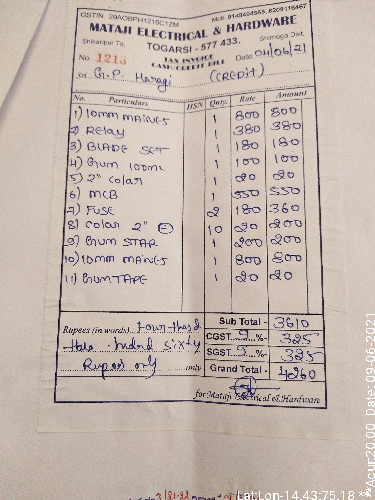 GSTIN 29AOBPH1216C1ZM Mob. 9148494565, 8209116467
MATAJI ELECTRICAL & HARDWARE
Shikaripur Tq. TOGARSI - 577 433. Shimoga Dist.
No. 1213 TAX INVOICE CASH/CREDIT BILL Date 04/06/21
Sri G.P. Haragi (CREDIT)
No. Particulars HSN Qnty. Rate Amount
1) 10mm MAINES 1 800 800
2) Relay 1 380 380
3) BLADE SET 1 180 180
4) Gum 100ml 1 100 100
5) 2" colar 1 20 20
6) MCB 1 550 550
7) FUSE 2 180 360
8) colar 2" 10 20 200
9) Gum STAR 1 200 200
10) 10mm MAINES 1 800 800
11) Gum TAPE 1 20 20
Sub Total - 3610
Rupees (in words) CGST 9 %- 325
sixty SGST 9 %- 325
Rupees only only Grand Total - 4260
for Mataji Electrical & Hardware
LatLon-14.43:75.18 **Acur20.00 Date: 09-06-2021